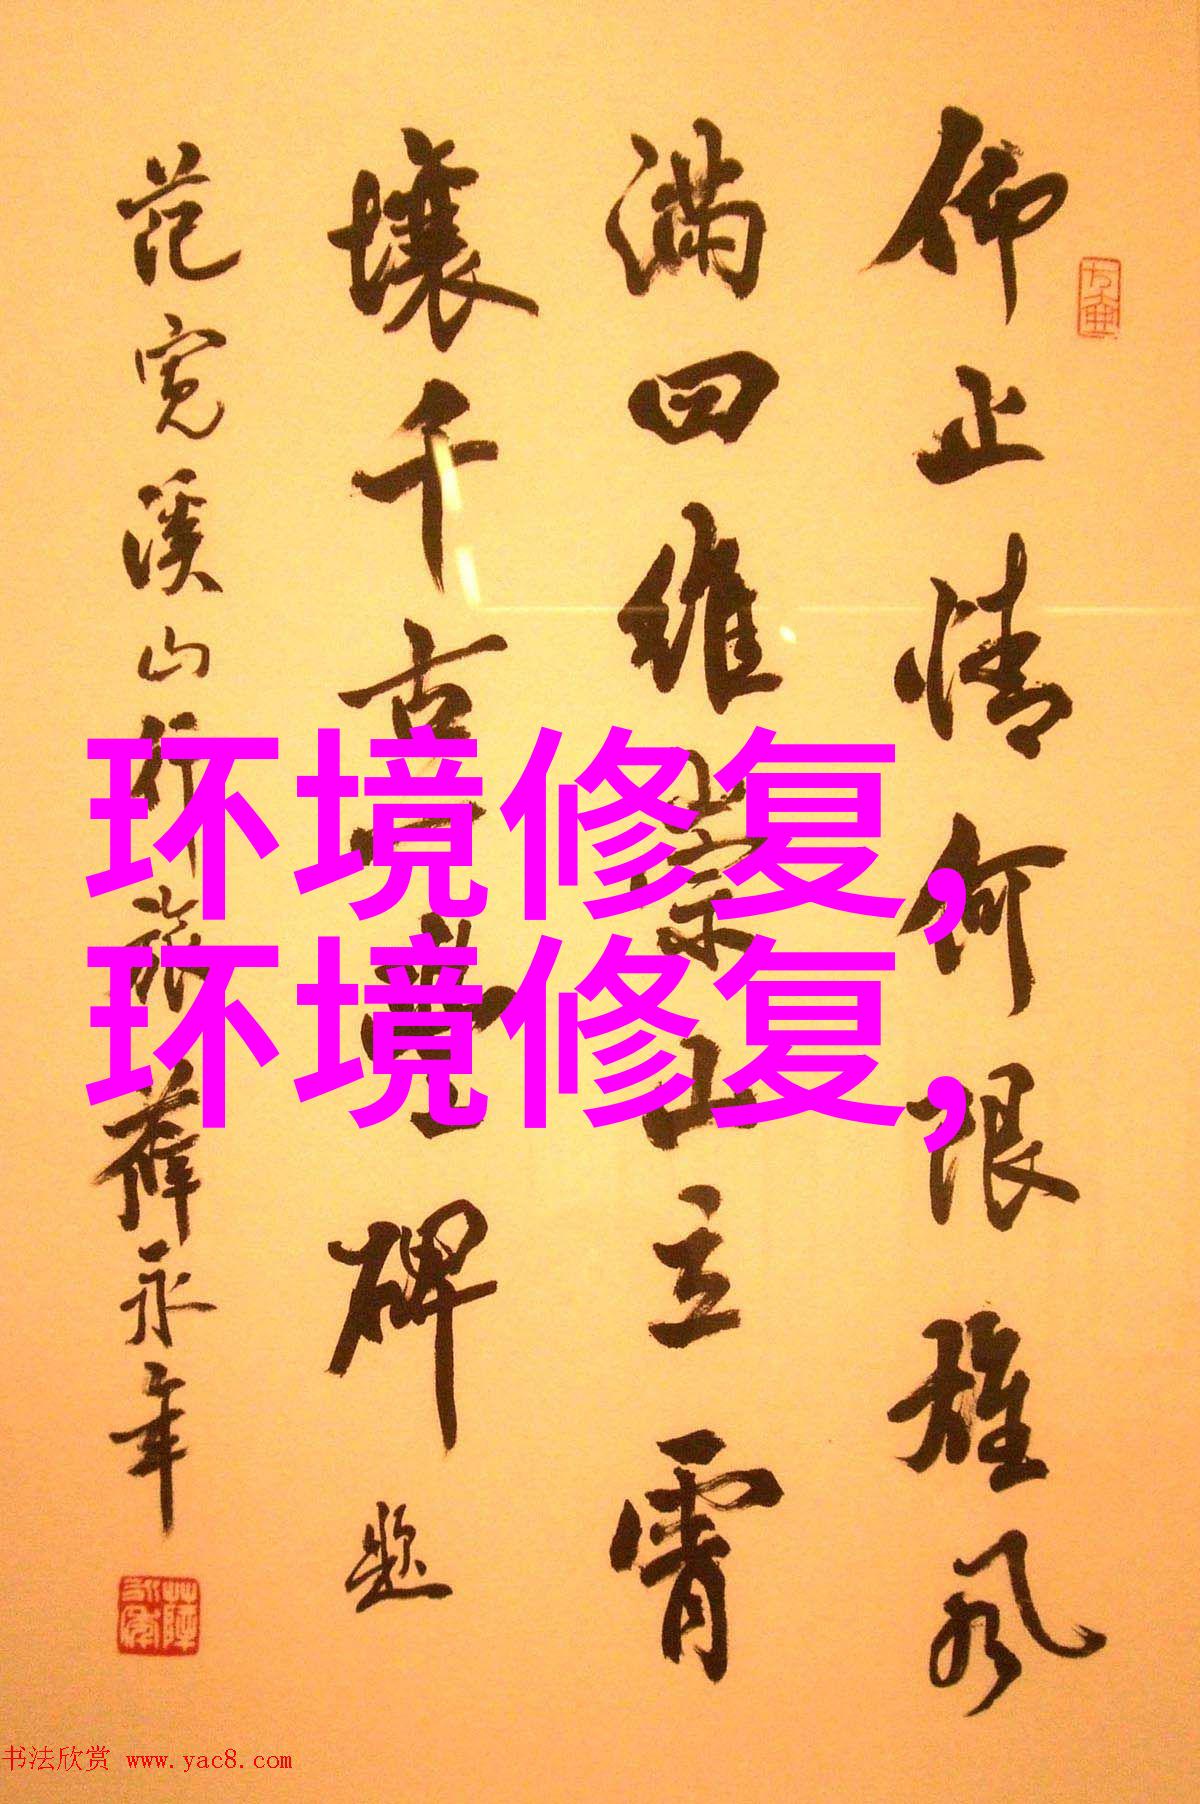 仰止情何限雄风
满四维崇山立霄
壤千古一豐碑题
范宽溪山行旅 薛永年
环境修复,
环境修复,
书法欣赏 www.yac8.com